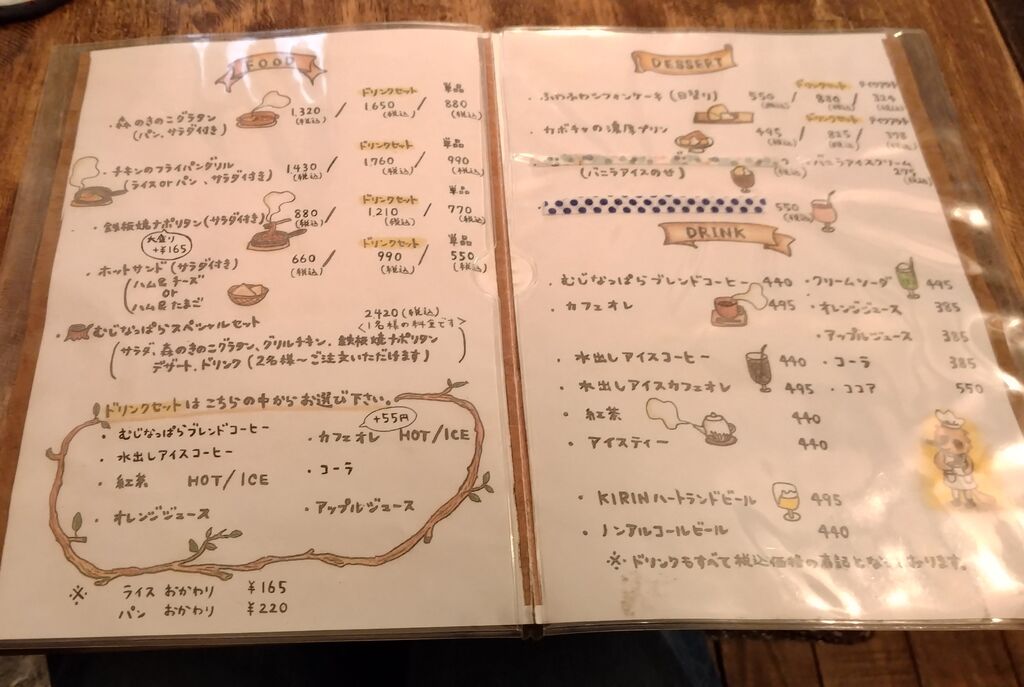 FOOD
ドリンクセット 単品
・森のきのこグラタン 1,320 / 1,650 / 880
(パン、サラダ付き) (税込) (税込) (税込)
ドリンクセット 単品
・チキンのフライパングリル 1,430 / 1,760 / 990
(ライス or パン、サラダ付き) (税込) (税込) (税込)
ドリンクセット 単品
・鉄板焼ナポリタン(サラダ付き) 880 / 1,210 / 770
(税込) (税込) (税込)
大盛り
+¥165
ドリンクセット 単品
・ホットサンド(サラダ付き) 660 / 990 / 550
(税込) (税込) (税込)
ハム&チーズ
or
ハム&たまご
2420(税込)
・むじなっぱらスペシャルセット <1名様の料金です>
サラダ、森のきのこグラタン、グリルチキン、鉄板焼ナポリタン
デザート、ドリンク(2名様〜ご注文いただけます)
ドリンクセットはこちらの中からお選び下さい。
+55円
・むじなっぱらブレンドコーヒー
・カフェオレ HOT/ICE
・水出しアイスコーヒー
・コーラ
・紅茶 HOT/ICE
・オレンジジュース
・アップルジュース
※ ライス おかわり ¥165
パン おかわり ¥220
DESSERT
ドリンクセット テイクアウト
・ふわふわシフォンケーキ(日替り) 550 / 880 / 324
(税込) (税込) (税込)
ドリンクセット テイクアウト
・カボチャの濃厚プリン 495 / 825 / 378
(税込) (税込) (税込)
(バニラアイスのせ)
・バニラアイスクリーム
(税込)
550
(税込)
DRINK
・むじなっぱらブレンドコーヒー 440
・カフェオレ 495
・水出しアイスコーヒー 440
・水出しアイスカフェオレ 495
・紅茶 440
・アイスティー 440
・クリームソーダ 495
・オレンジジュース 385
・アップルジュース 385
・コーラ 385
・ココア 550
・KIRINハートランドビール 495
・ノンアルコールビール 440
※・ドリンクもすべて税込価格の表記となっております。